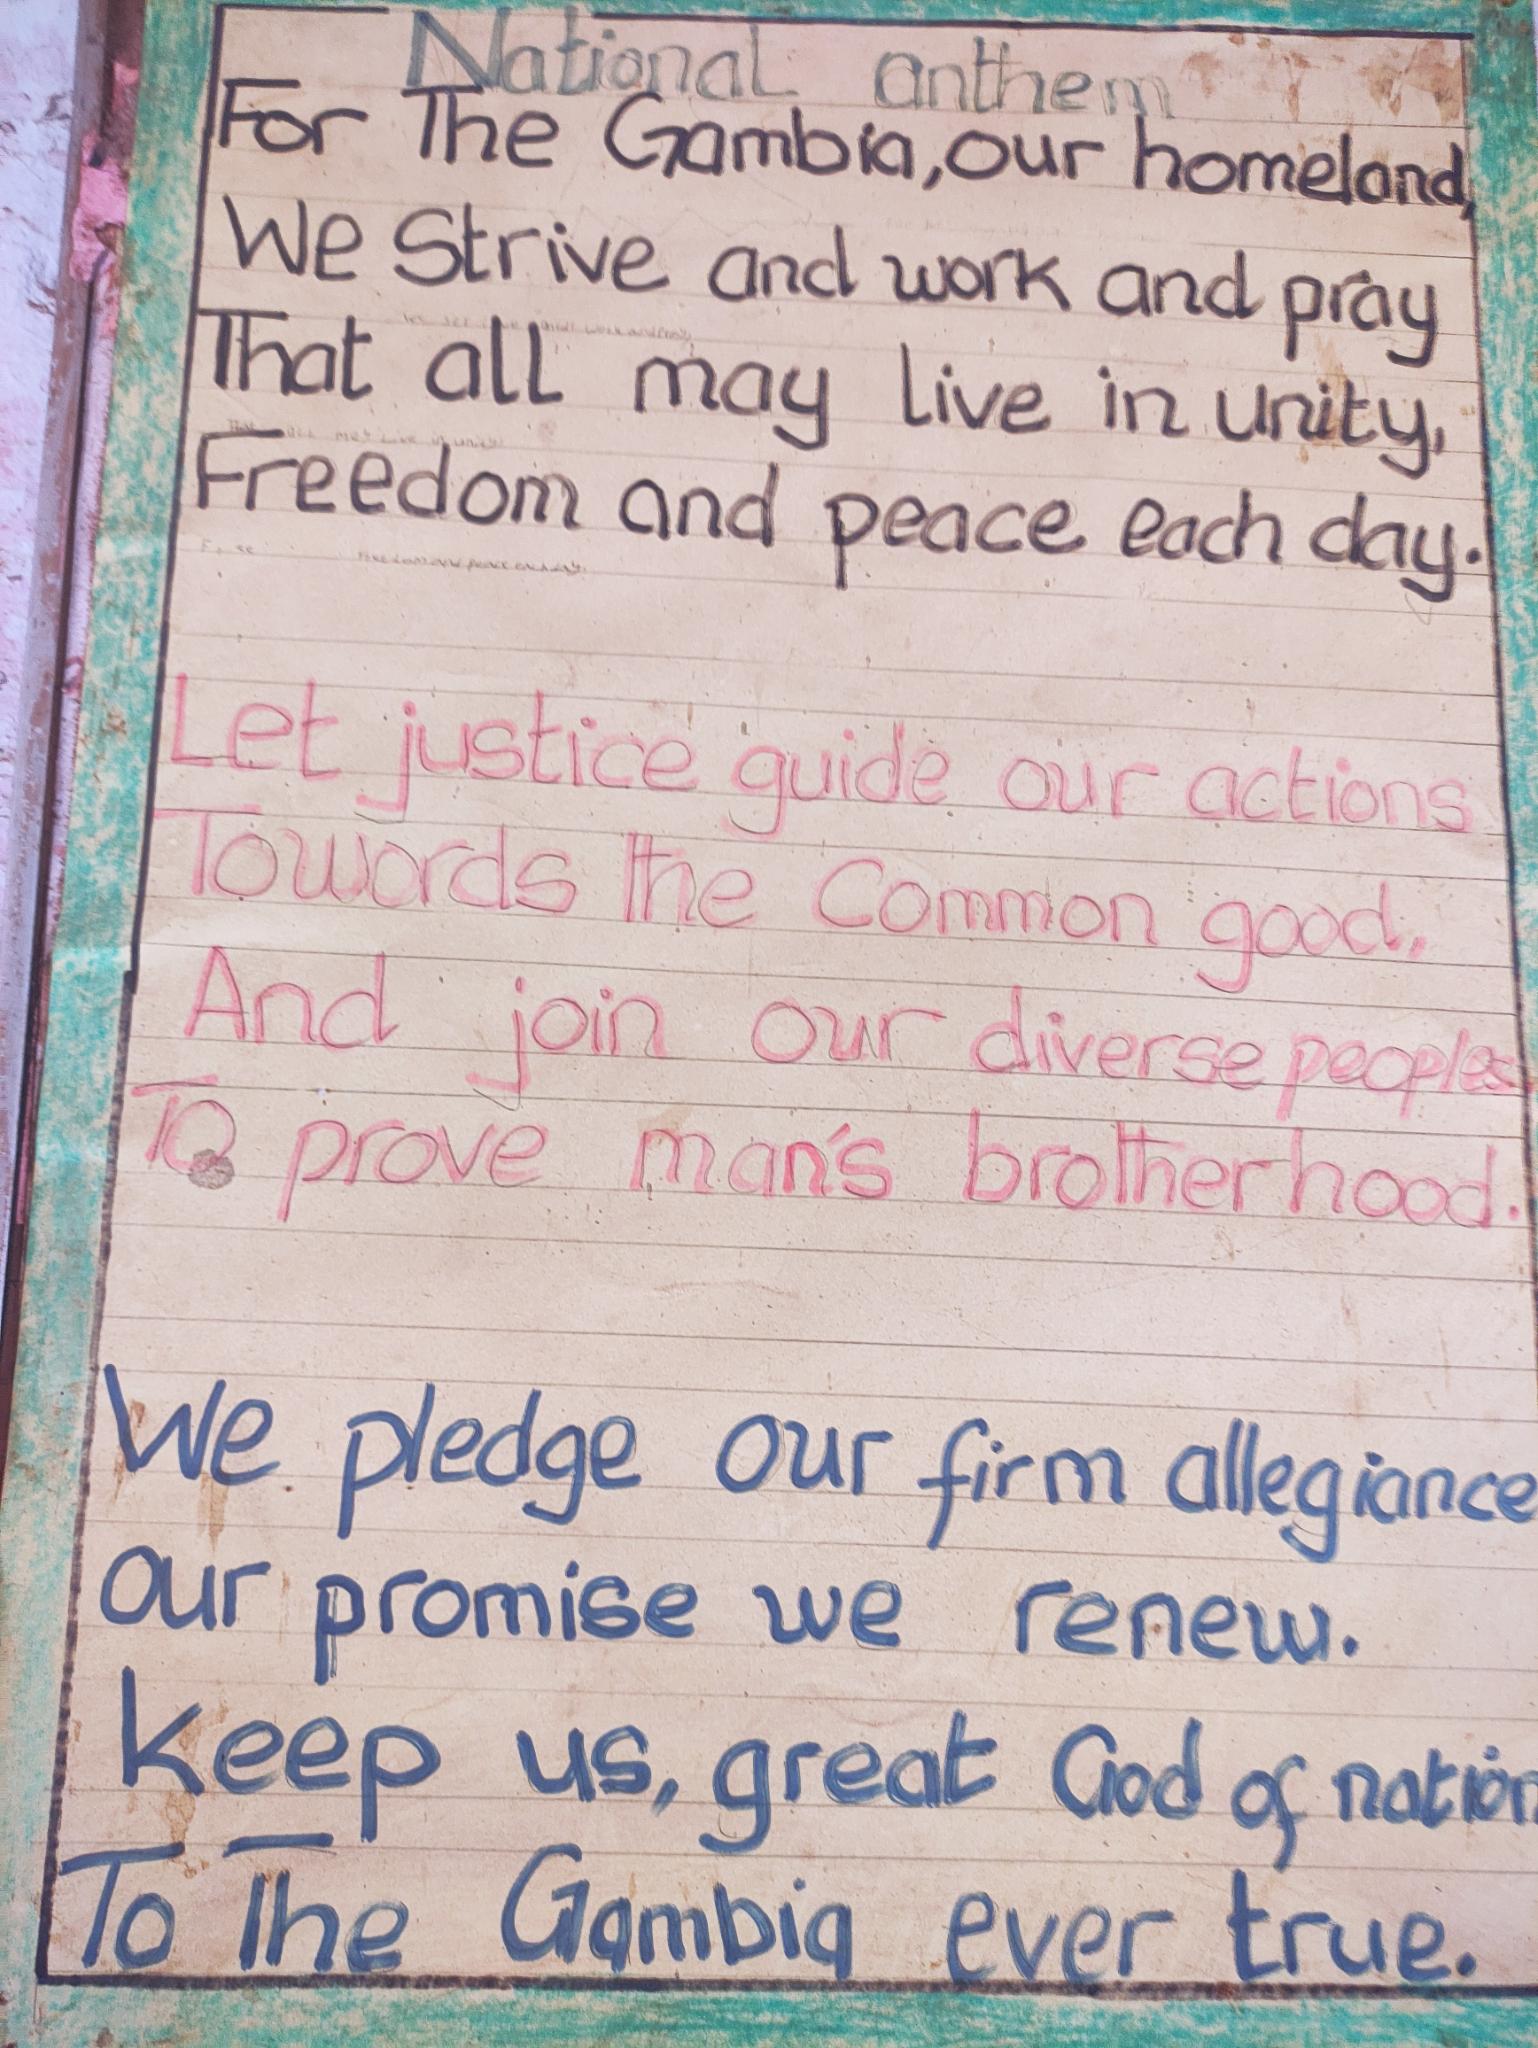 National anthem
For The Gambia, our homeland,
We Strive and work and pray
That all may live in unity,
Freedom and peace each day.
Let justice guide our actions
Towords the Common good,
And join our diverse peoples
To prove man's brotherhood.
We pledge our firm allegiance
our promise we renew.
keep us, great God of nation
To The Gambia ever true.